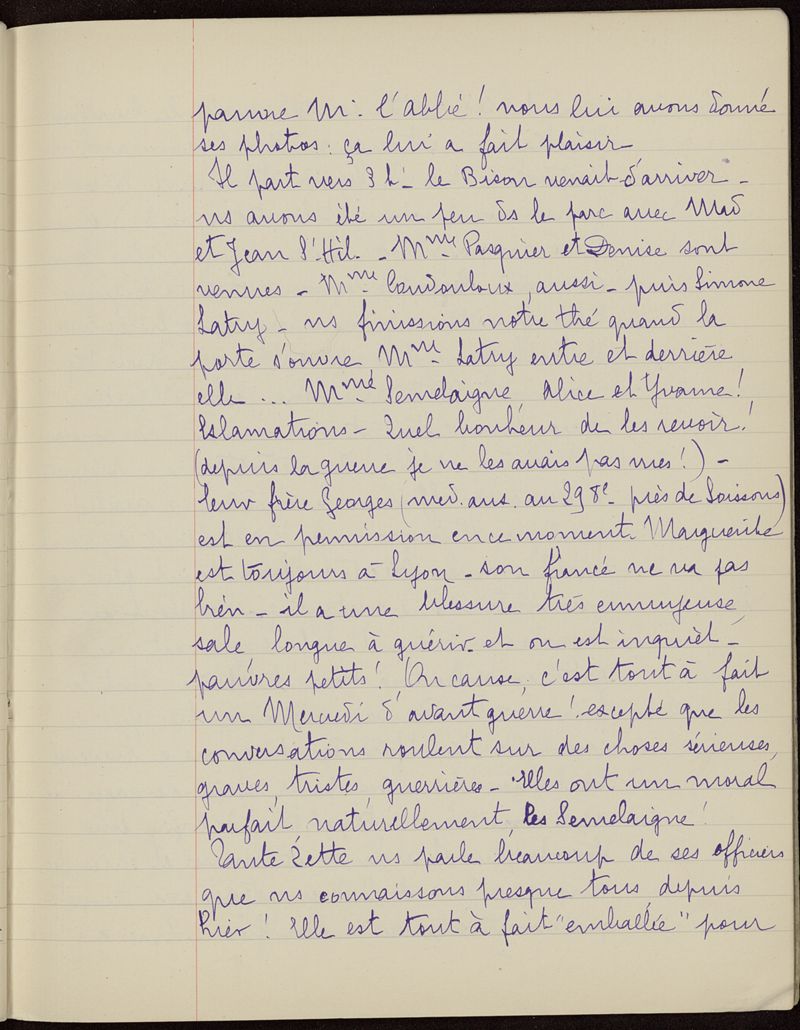 pauvre M. l'Abbé ! nous lui avons donné
ses photos : ça lui a fait plaisir -
Il part vers 3 h - le Bison venait d'arriver -
ns avons été un peu ds le parc avec Mad
et Jean S!Hil. - Mme Pasquier et Denise sont
venues - Mme Coudouloux, aussi - puis Simone
Latry - ns finissions notre thé quand la
porte s'ouvre Mme Latry entre et derrière
elle ... Mme Semelaigne, Alice et Yvonne !
Exlamations - Quel bonheur de les revoir !
(depuis la guerre je ne les avais pas vues !) -
leur frère Georges (med. aux. au 298e près de Soissons)
est en permission en ce moment. Marguerite
est toujours à Lyon - son fiancé ne va pas
bien - il a une blessure très ennuyeuse,
sale longue à guérir - et on est inquièt -
pauvres petits ! On cause, c'est tout à fait
un Mercredi d'avant guerre ! excepté que les
conversations roulent sur des choses sérieuses,
graves, tristes, guerrières - Elles ont un moral
parfait naturellement, les Semelaigne !
Tante Zette ns parle beaucoup de ses officiers
que ns connaissons presque tous depuis
hier ! Elle est tout à fait "emballée" pour